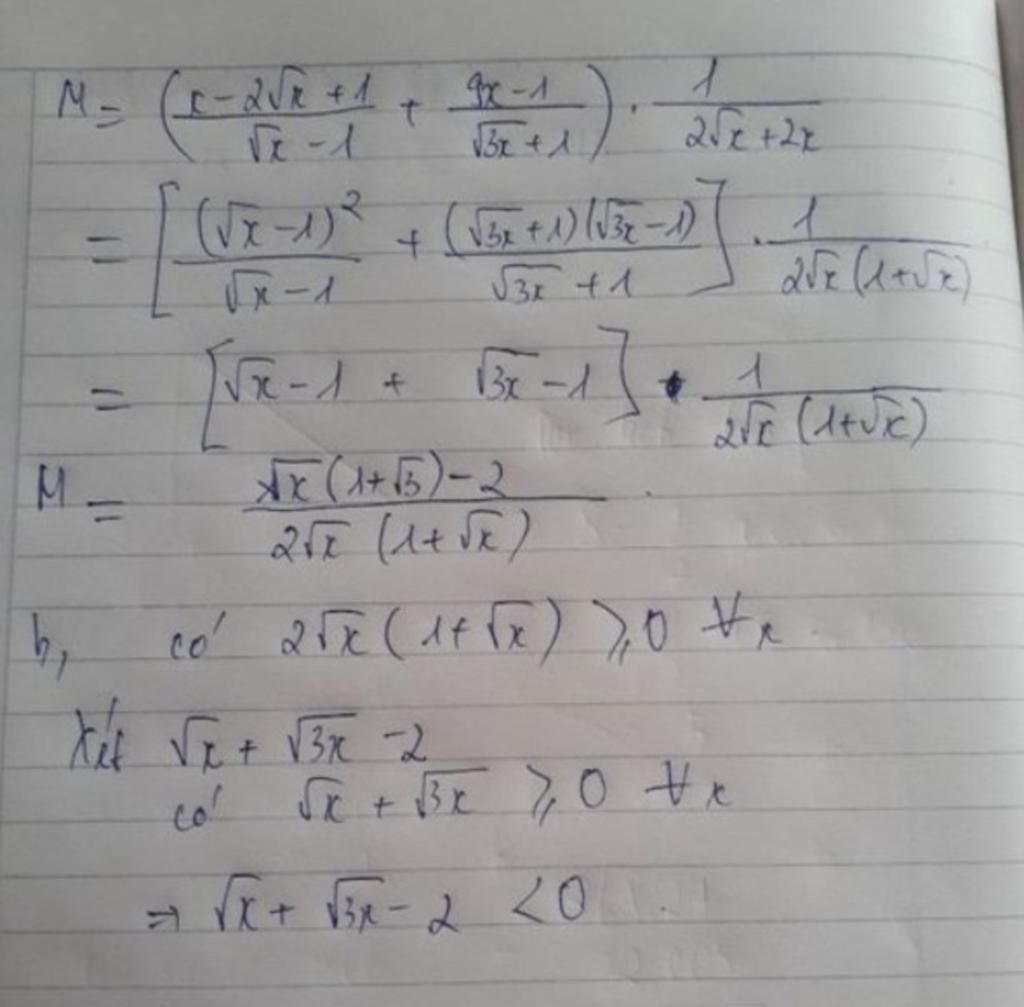 M = (x - 2√x + 1 / √x - 1 + 9x - 1 / √3x + 1) . 1 / 2√x + 2x
= [(√x - 1)² / √x - 1 + (√3x + 1)(√3x - 1) / √3x + 1] . 1 / 2√x (1 + √x)
= [√x - 1 + √3x - 1] • 1 / 2√x (1 + √x)
M = √x (1 + √3) - 2 / 2√x (1 + √x)
b, có 2√x (1 + √x) ⩾ 0 ∀x
Xét √x + √3x - 2
có √x + √3x ⩾ 0 ∀x
⇒ √x + √3x - 2 < 0